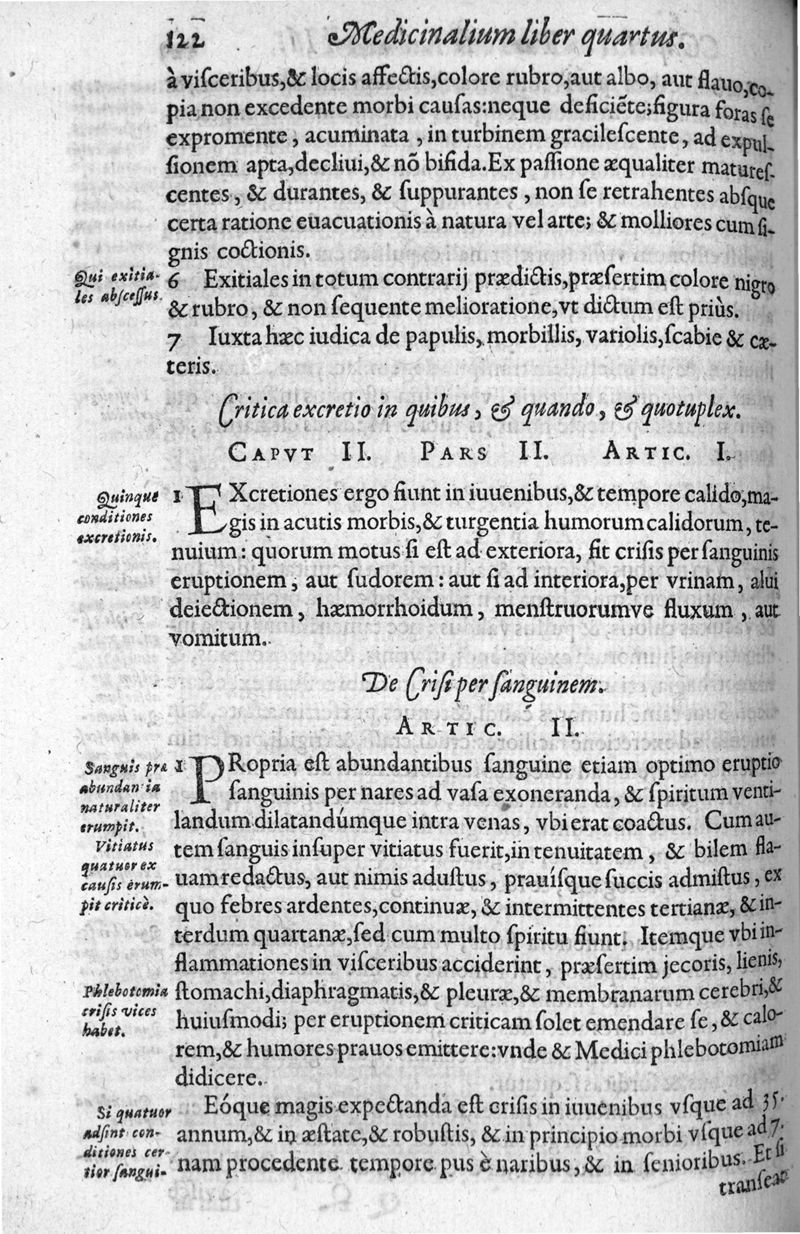 122 Medicinalium liber quartus.
à viſceribus,& locis affectis,colore rubro,aut albo, aut flauo,co-
pia non excedente morbi cauſas:neque deficiẽte;figura foras ſe
expromente, acuminata , in turbinem gracileſcente, ad expul-
ſionem apta,decliui,& nõ bifida.Ex paſſione æqualiter matureſ-
centes, & durantes, & ſuppurantes , non ſe retrahentes abſque
certa ratione euacuationis à natura vel arte; & molliores cum ſi-
gnis coctionis.
Qui exitia-
les abſceſſus.
6 Exitiales in totum contrarij prædictis,præſertim colore nigro
& rubro, & non ſequente melioratione,vt dictum eſt priùs.
7 Iuxta hæc iudica de papulis, morbillis, variolis,ſcabie & cæ-
teris.
Critica excretio in quibus, & quando, & quotuplex.
CAPVT II. PARS II. ARTIC. I.
Quinque
conditiones
excretionis.
1 EXcretiones ergo fiunt in iuuenibus,& tempore calido,ma-
gis in acutis morbis,& turgentia humorum calidorum, te-
nuium: quorum motus ſi eſt ad exteriora, fit criſis per ſanguinis
eruptionem, aut ſudorem: aut ſi ad interiora,per vrinam, alui
deiectionem, hæmorrhoidum, menſtruorumve fluxum , aut
vomitum.
De Criſi per ſanguinem.
ARTIC. II.
Sanguis præ
abundantia
naturaliter
erumpit.
Vitiatus
quatuor ex
cauſis erum-
pit criticè.
1 PRopria eſt abundantibus ſanguine etiam optimo eruptio
ſanguinis per nares ad vaſa exoneranda, & ſpiritum venti-
landum dilatandúmque intra venas, vbi erat coactus. Cum au-
tem ſanguis inſuper vitiatus fuerit,in tenuitatem, & bilem fla-
uam redactus, aut nimis aduſtus, prauíſque ſuccis admiſtus, ex
quo febres ardentes,continuæ, & intermittentes tertianæ, & in-
terdum quartanæ,ſed cum multo ſpiritu fiunt. Itemque vbi in-
flammationes in viſceribus acciderint, præſertim jecoris, lienis,
Phlebotomia
criſis vices
habet.
ſtomachi,diaphragmatis,& pleuræ,& membranarum cerebri,&
huiuſmodi; per eruptionem criticam ſolet emendare ſe, & calo-
rem,& humores prauos emittere:vnde & Medici phlebotomiam
didicere.
Si quatuor
adſint con-
ditiones cer-
tior ſangui-
Eóque magis expectanda eſt criſis in iuuenibus vſque ad 35.
annum,& in æſtate,& robuſtis, & in principio morbi vſque ad 7.
nam procedente tempore pus è naribus,& in ſenioribus. Et ſi
tranſeat